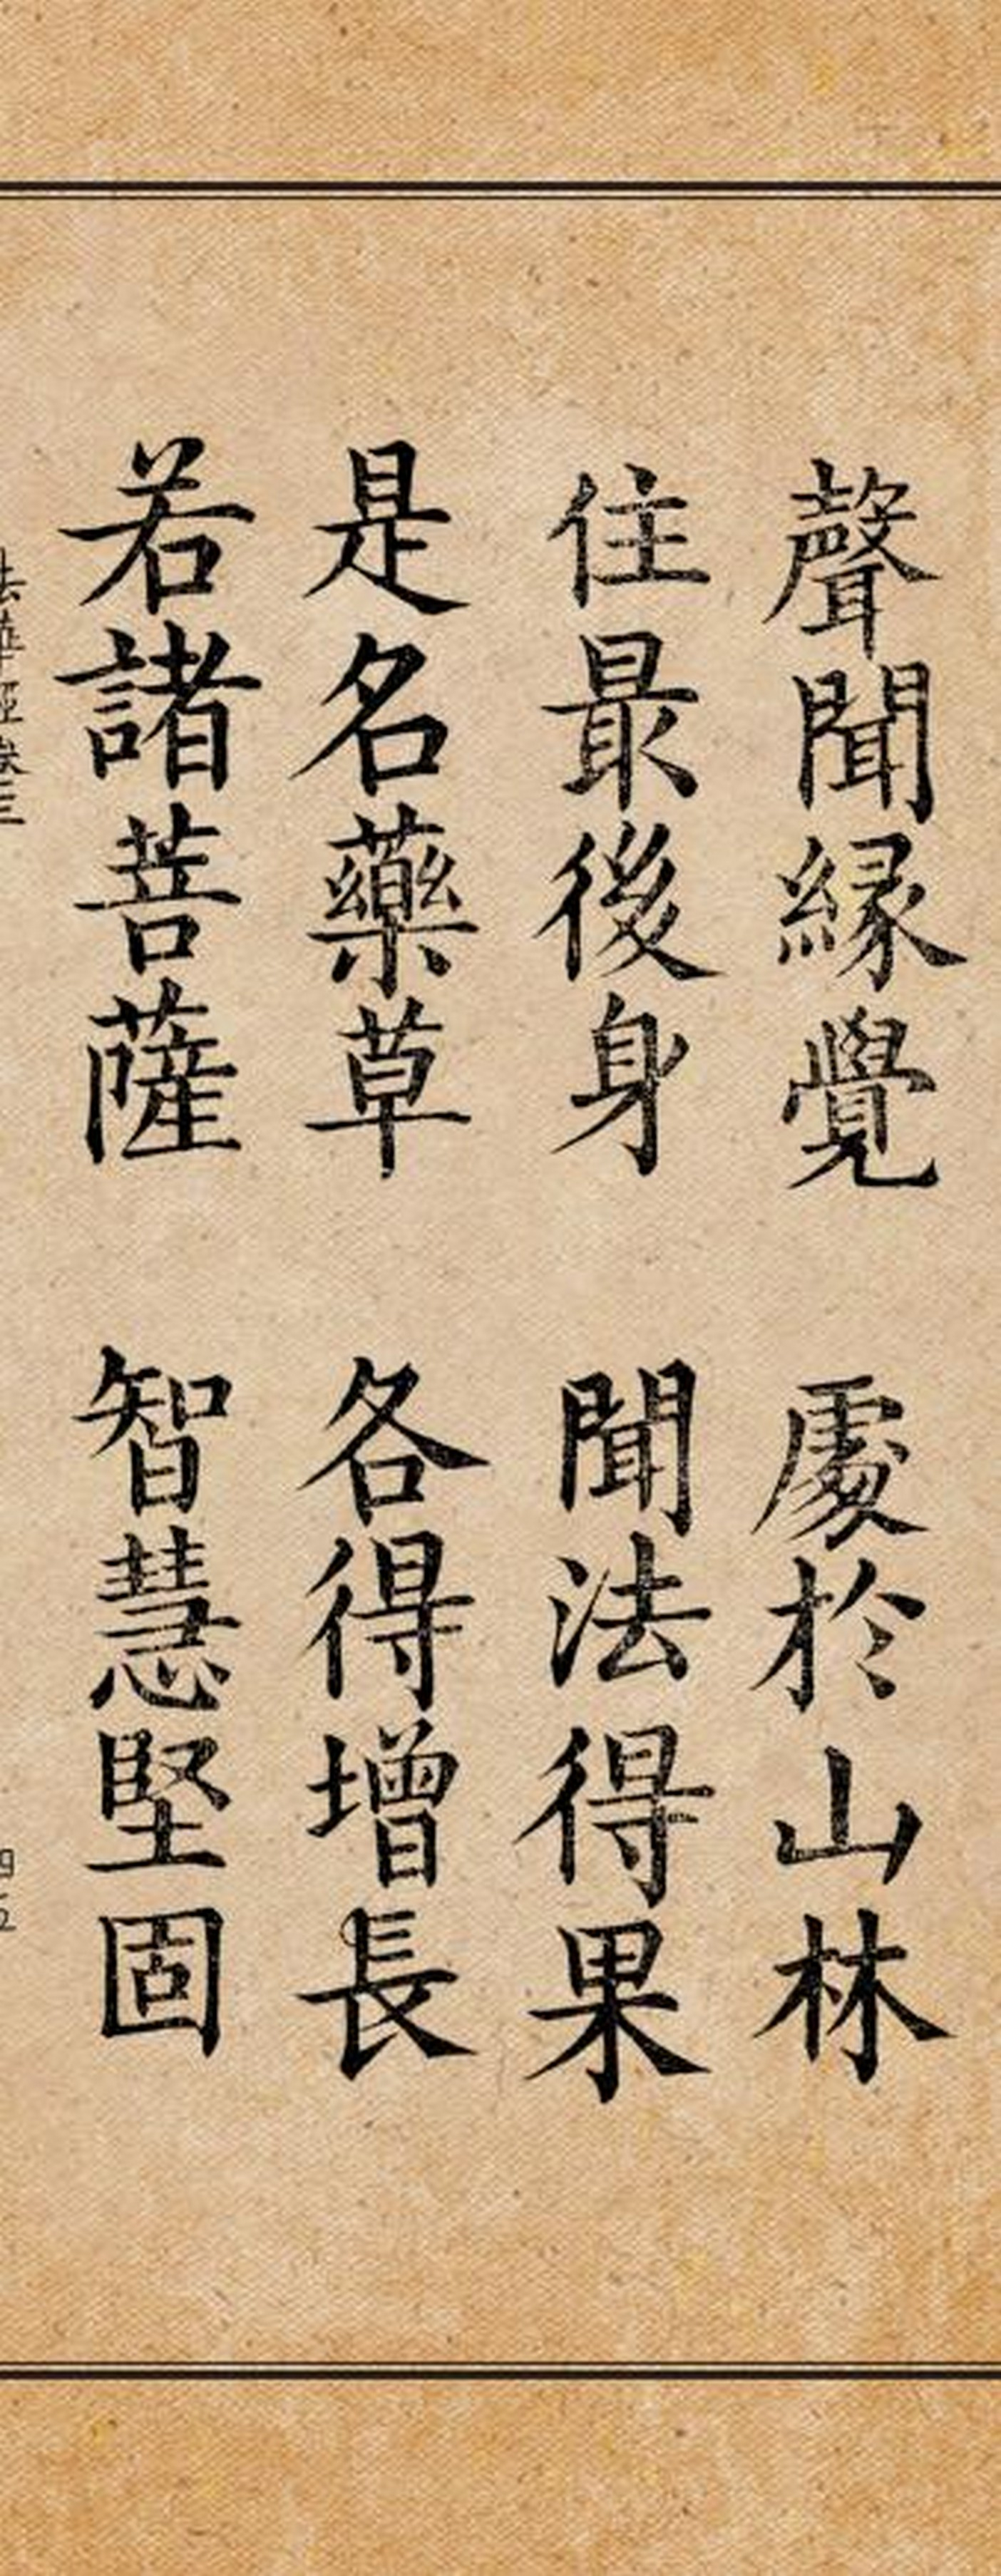 聲聞緣覺 處於山林
住最後身 聞法得果
是名藥草 各得增長
若諸菩薩 智慧堅固
法華經卷三